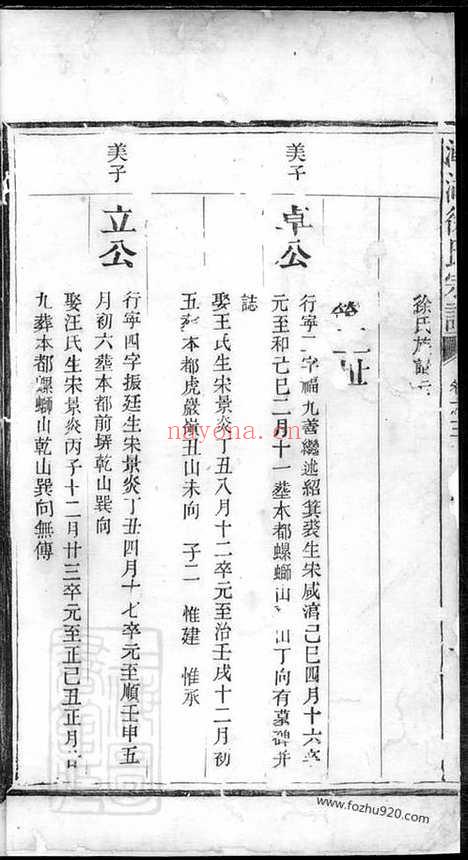 徐氏宗譜
徐氏族
第 世
美子
卓公
行寧二字福九善繼述紹箕裘生宋咸淳己巳四月十六卒
元至和 巳二月十一塟本都螺螄山 山丁向有墓碑并
誌
娶王氏生宋景炎丁丑八月十二卒元至治壬戌十二月初
五塟本都虎巖 丑山未向 子二 惟建 惟承
美子
立公
行寧四字振廷生宋景炎丁丑四月十七卒元至順壬申五
月初六塟本都前 乾山巽向
娶汪氏生宋景炎丙子十二月廿三卒元至正己丑正月
九葬本都螺螄山乾山巽向無傳
nayona.cn
www.fozhu920.com